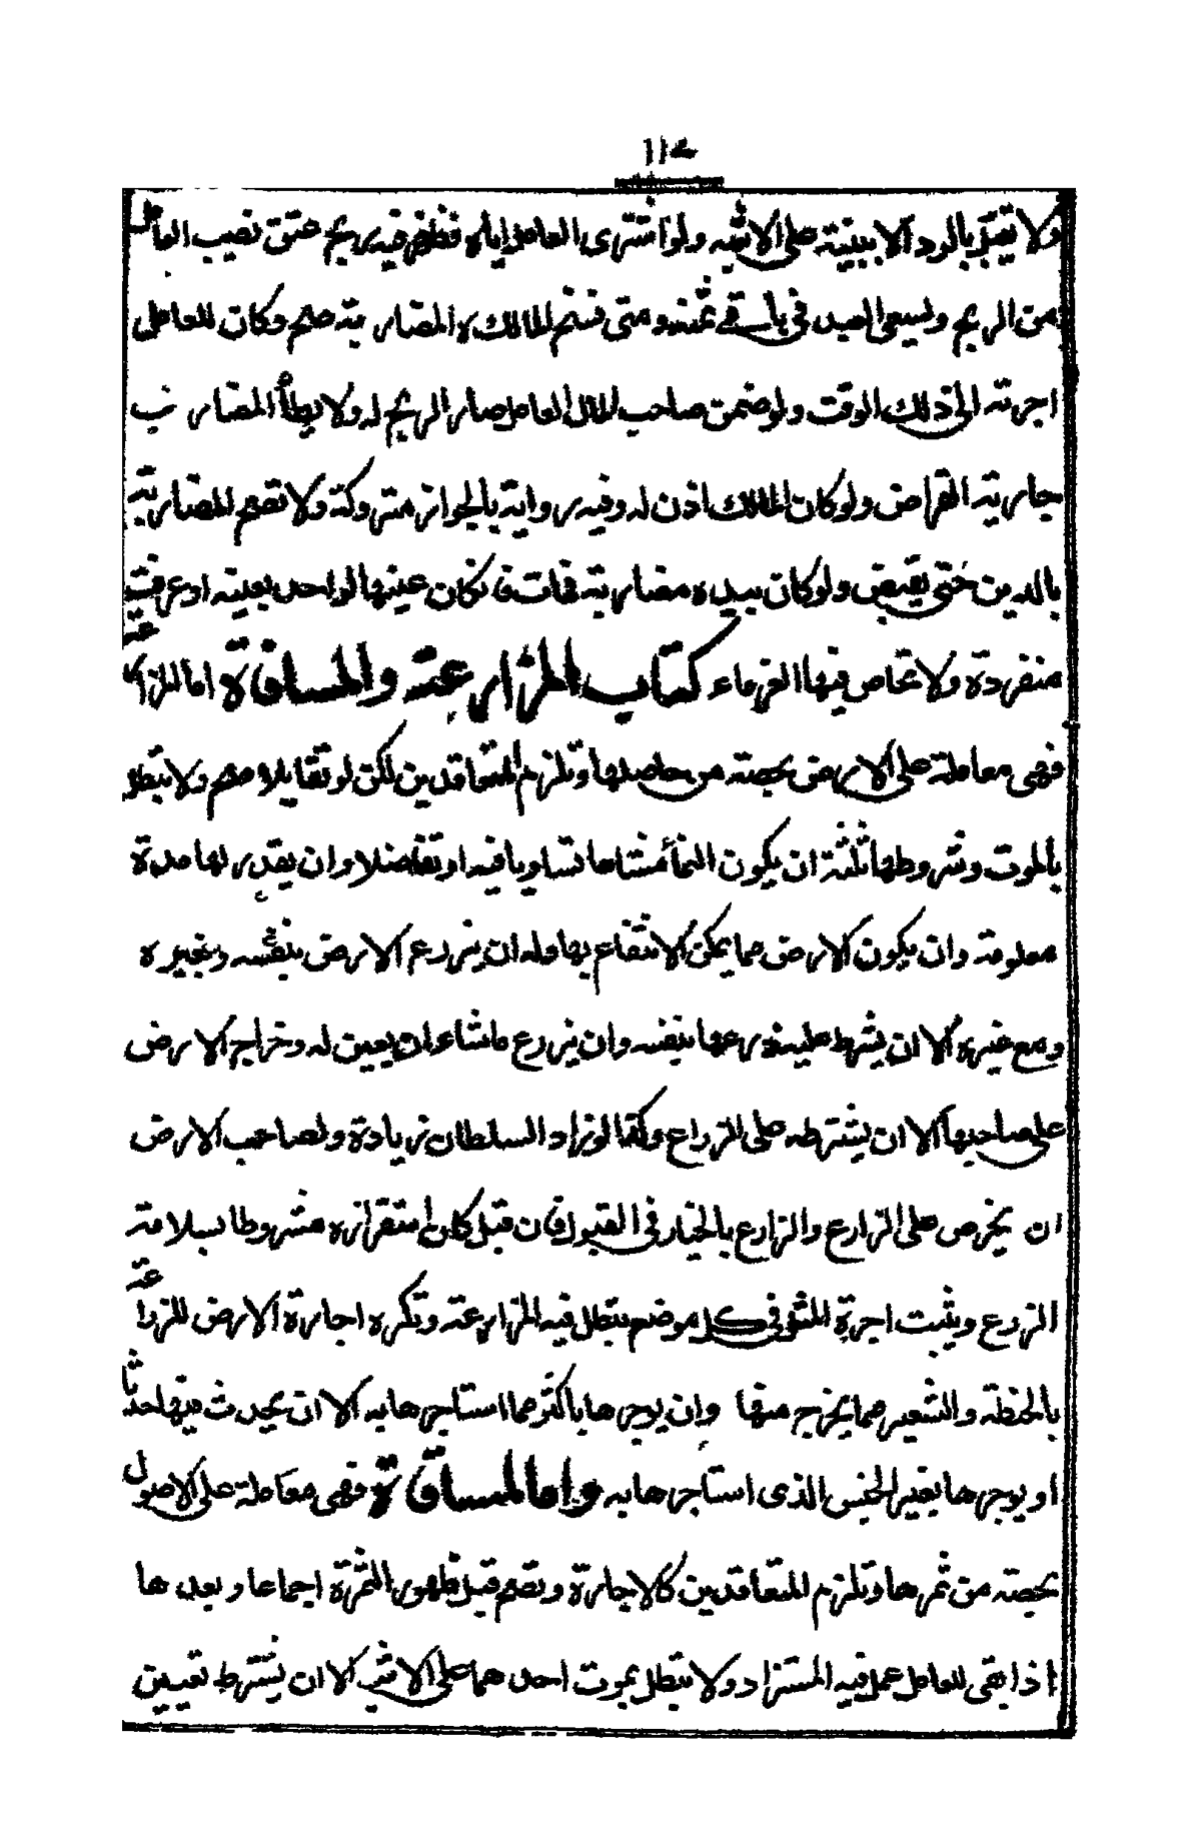 ١١٤
ولا تقبل بالرد الا ببينة على الاشبه ولو اشترى العامل اباه فظهر فيه ربح عتق نصيب العامل
من الربح وليسعى العبد في باقي ثمنه ومتى فسخ المالك المضاربة صح وكان للعامل
اجرته الى ذلك الوقت ولو ضمن صاحب المال العامل صار الربح له ولا يطأ المضارب
جارية القراض ولو كان المالك اذن له وفيه رواية بالجواز متروكة ولا تصح المضاربة
بالدين حتى يقبض ولو كان بيده مضاربة فمات فان كان عينها لواحد بعينه او عرفت
منفردة ولا تحاص فيها الغرماء كتاب المزارعة والمساقاة اما المزارعة
فهي معاملة على الارض بحصة من حاصلها وتلزم المتعاقدين لكن لو تقايلا صح ولا تبطل
بالموت وشروطها ثلثة ان يكون النمأ مشاعا تساويا فيه او تفاضلا وان يقدر لها مدة
معلومة وان يكون الارض مما يمكن الانتفاع بها وله ان يزرع الارض بنفسه وبغيره
ومع غيره الا ان يشرط عليه زرعها بنفسه وان يزرع ما شاء الا ان يعين له وخراج الارض
على صاحبها الا ان يشترطه على الزراع وكذا لو زاد السلطان زيادة ولصاحب الارض
ان يخرص على الزارع والزارع بالخيار في القبول فان قبل كان استقراره مشروطا بسلامة
الزرع ويثبت اجرة المثل في كل موضع تبطل فيه المزارعة وتكره اجارة الارض للزراعة
بالحنطة والشعير مما يخرج منها وان يوجرها باكثر مما استاجرها به الا ان يحدث فيها حدثا
او يوجرها بغير الجنس الذي استاجرها به واما المساقاة فهي معاملة على الاصول
بحصة من ثمرها وتلزم المتعاقدين كالاجارة وتصح قبل ظهور الثمرة اجماعا وبعدها
اذا بقي للعامل عمل فيه المستزاد ولا تبطل بموت احدهما على الاشبه الا ان يشترط تعيين